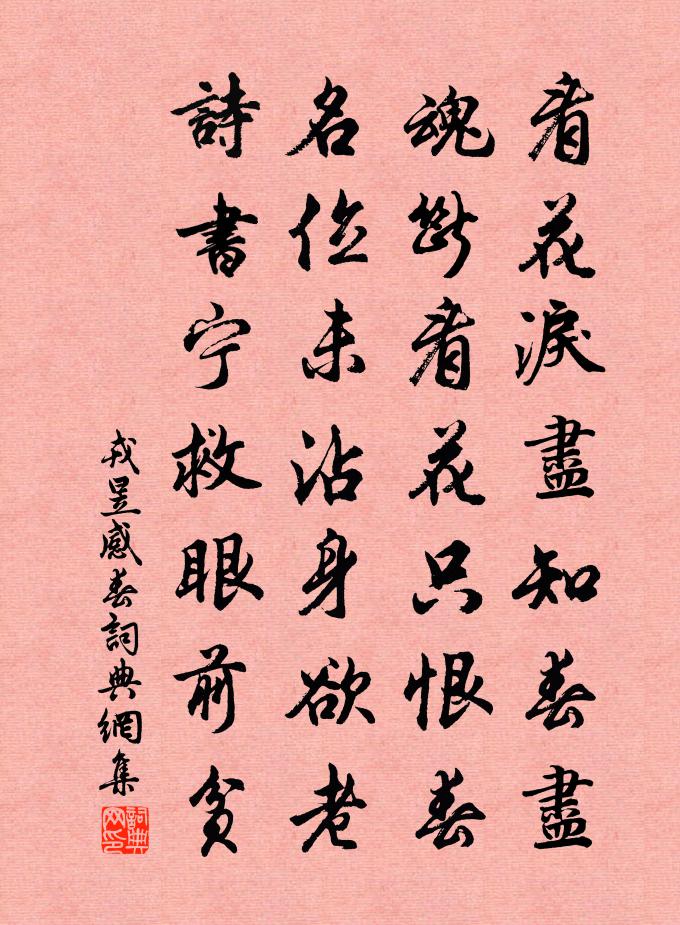 看花淚盡知春盡
魂斷看花只恨春
名位未沾身欲老
詩書宁救眼前貧
戎昱感春詞典網集
詞典网印